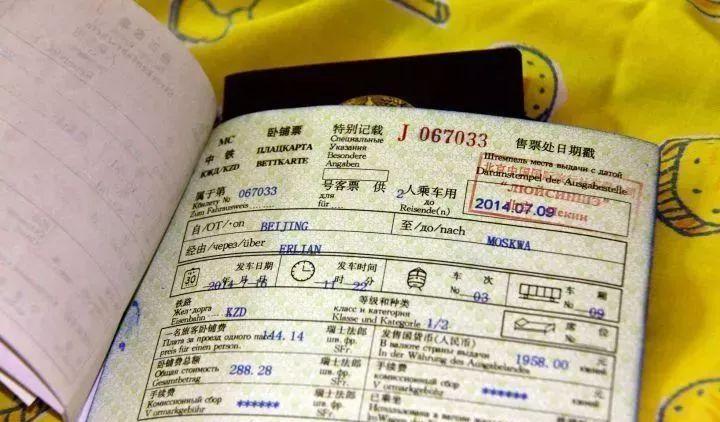 МС 卧铺票 特别记载 J 067033 售票处日期戳
中 铁 ПЛАЦКАРТА Специальные Указания Штемпель места выдачи с датой
КЖД/KZD BETTKARTE Besondere Angaben Datumstempel der Ausgabestelle
北京中国国际
"ЛЮЙСИНШЭ"
2014.07.09
属于第 067033 号客票 供 2 人乘车用
К билету № для до
Zum Fahrausweis für Reisende(n)
自/ОТ/von BEIJING 至/до/nach MOSKWA
经由/через/über ERLIAN
发车日期 发车时间 车 次 车 厢
30 年 月 日 11时 22分 № 03 № 09
铁路 等级和种类
Жел.дорога класс и категория
Eisenbahn KZD Klasse und Kategorie 1/2 席 位
一名旅客卧铺费 瑞士法郎 发售国货币(人民币)
Плата за проезд одного 144.14 шв. фр. В валюте страны выдачи 1958.00 元
preis für einen person. SFr. In der Währung des Ausgabelandes
卧铺费总额 瑞士法郎 手续费
Общая стоимость 288.28 шв. фр. Комиссионный сбор ****** 元
Gesamtbetrag SFr. Vormarkgebühr
手续费 瑞士法郎 已乘坐
Комиссионный сбор ****** шв. фр. Использована в вагоне
Vormarkgebühr SFr.